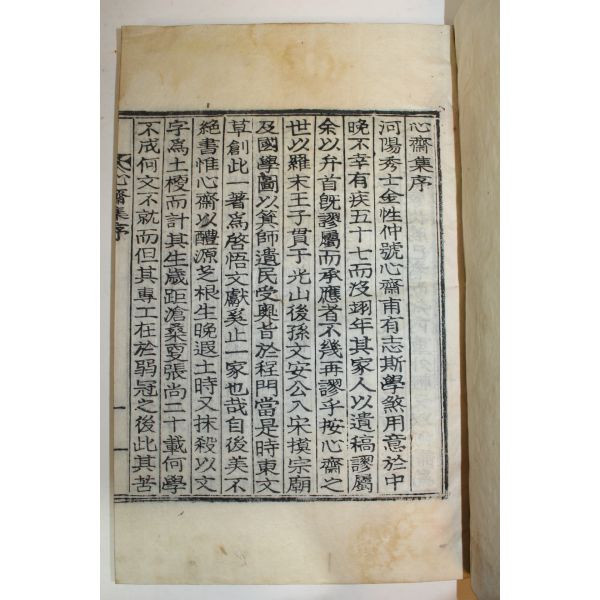 心齋集序
河陽秀士金性仲號心齋甫有志斯學煞用意於中
晚不幸有疾五十七而歿翊年其家人以遺稿謬屬
余以弁首旣謬屬而承應者不幾再謬乎按心齋之
世以羅末王子貫于光山後孫文安公入宋摸宗廟
及國學圖以箕師遺民受奧旨於程門當是時東文
草創此一著爲啓悟文獻奚止一家也哉自後美不
絶書惟心齋以醴源芝根生晚遐土時又抹殺以文
字爲土梗而計其生歲距滄桑夏張尚二十載何學
不成何文不就而但其專工在於弱冠之後此其苦
心齋集序
一
一